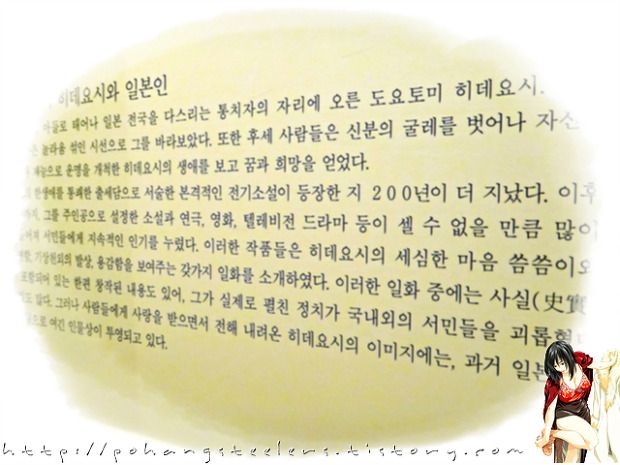 히데요시와 일본인
아들로 태어나 일본 전국을 다스리는 통치자의 자리에 오른 도요토미 히데요시.
놀라움 섞인 시선으로 그를 바라보았다. 또한 후세 사람들은 신분의 굴레를 벗어나 자신
재능으로 운명을 개척한 히데요시의 생애를 보고 꿈과 희망을 얻었다.
한생애를 통쾌한 출세담으로 서술한 본격적인 전기소설이 등장한 지 200년이 더 지났다. 이후
그를 주인공으로 설정한 소설과 연극, 영화, 텔레비전 드라마 등이 셀 수 없을 만큼 많이
서민들에게 지속적인 인기를 누렸다. 이러한 작품들은 히데요시의 세심한 마음 씀씀이와
기상천외의 발상, 용감함을 보여주는 갖가지 일화를 소개하였다. 이러한 일화 중에는 사실(史實
포함되어 있는 한편 창작된 내용도 있어, 그가 실제로 펼친 정치가 국내외의 서민들을 괴롭혔
많다. 그러나 사람들에게 사랑을 받으면서 전해 내려온 히데요시의 이미지에는, 과거 일본
여긴 인물상이 투영되고 있다.
http://pohangsteelers.tistory.com